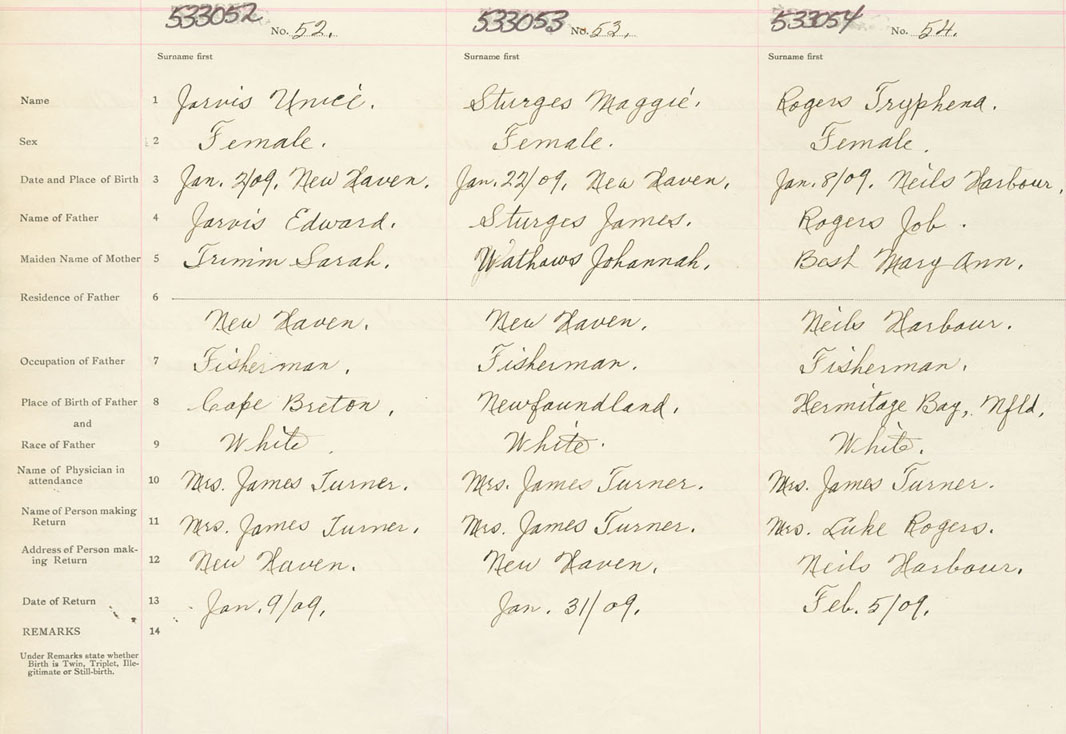 533052 No. 52. 533053 No. 53. 533054 No. 54.
Surname first Surname first Surname first
Name 1 Jarvis Unicé. Sturges Maggié. Rogers Tryphena.
Sex 2 Female. Female. Female.
Date and Place of Birth 3 Jan. 2/09. New Haven. Jan. 22/09. New Haven. Jan. 8/09. Neils Harbour.
Name of Father 4 Jarvis Edward. Sturges James. Rogers Job.
Maiden Name of Mother 5 Trimm Sarah. Wathaws Johannah. Best Mary Ann.
Residence of Father 6
New Haven. New Haven. Neils Harbour.
Occupation of Father 7 Fisherman. Fisherman. Fisherman.
Place of Birth of Father 8 Cape Breton. Newfoundland. Hermitage Bay, Nfld.
and
Race of Father 9 White. White. White.
Name of Physician in
attendance 10 Mrs. James Turner. Mrs. James Turner. Mrs. James Turner.
Name of Person making
Return 11 Mrs. James Turner. Mrs. James Turner. Mrs. Luke Rogers.
Address of Person mak-
ing Return 12 New Haven. New Haven. Neils Harbour.
Date of Return 13 Jan. 9/09. Jan. 31/09. Feb. 5/09.
REMARKS 14
Under Remarks state whether
Birth is Twin, Triplet, Ille-
gitimate or Still-birth.